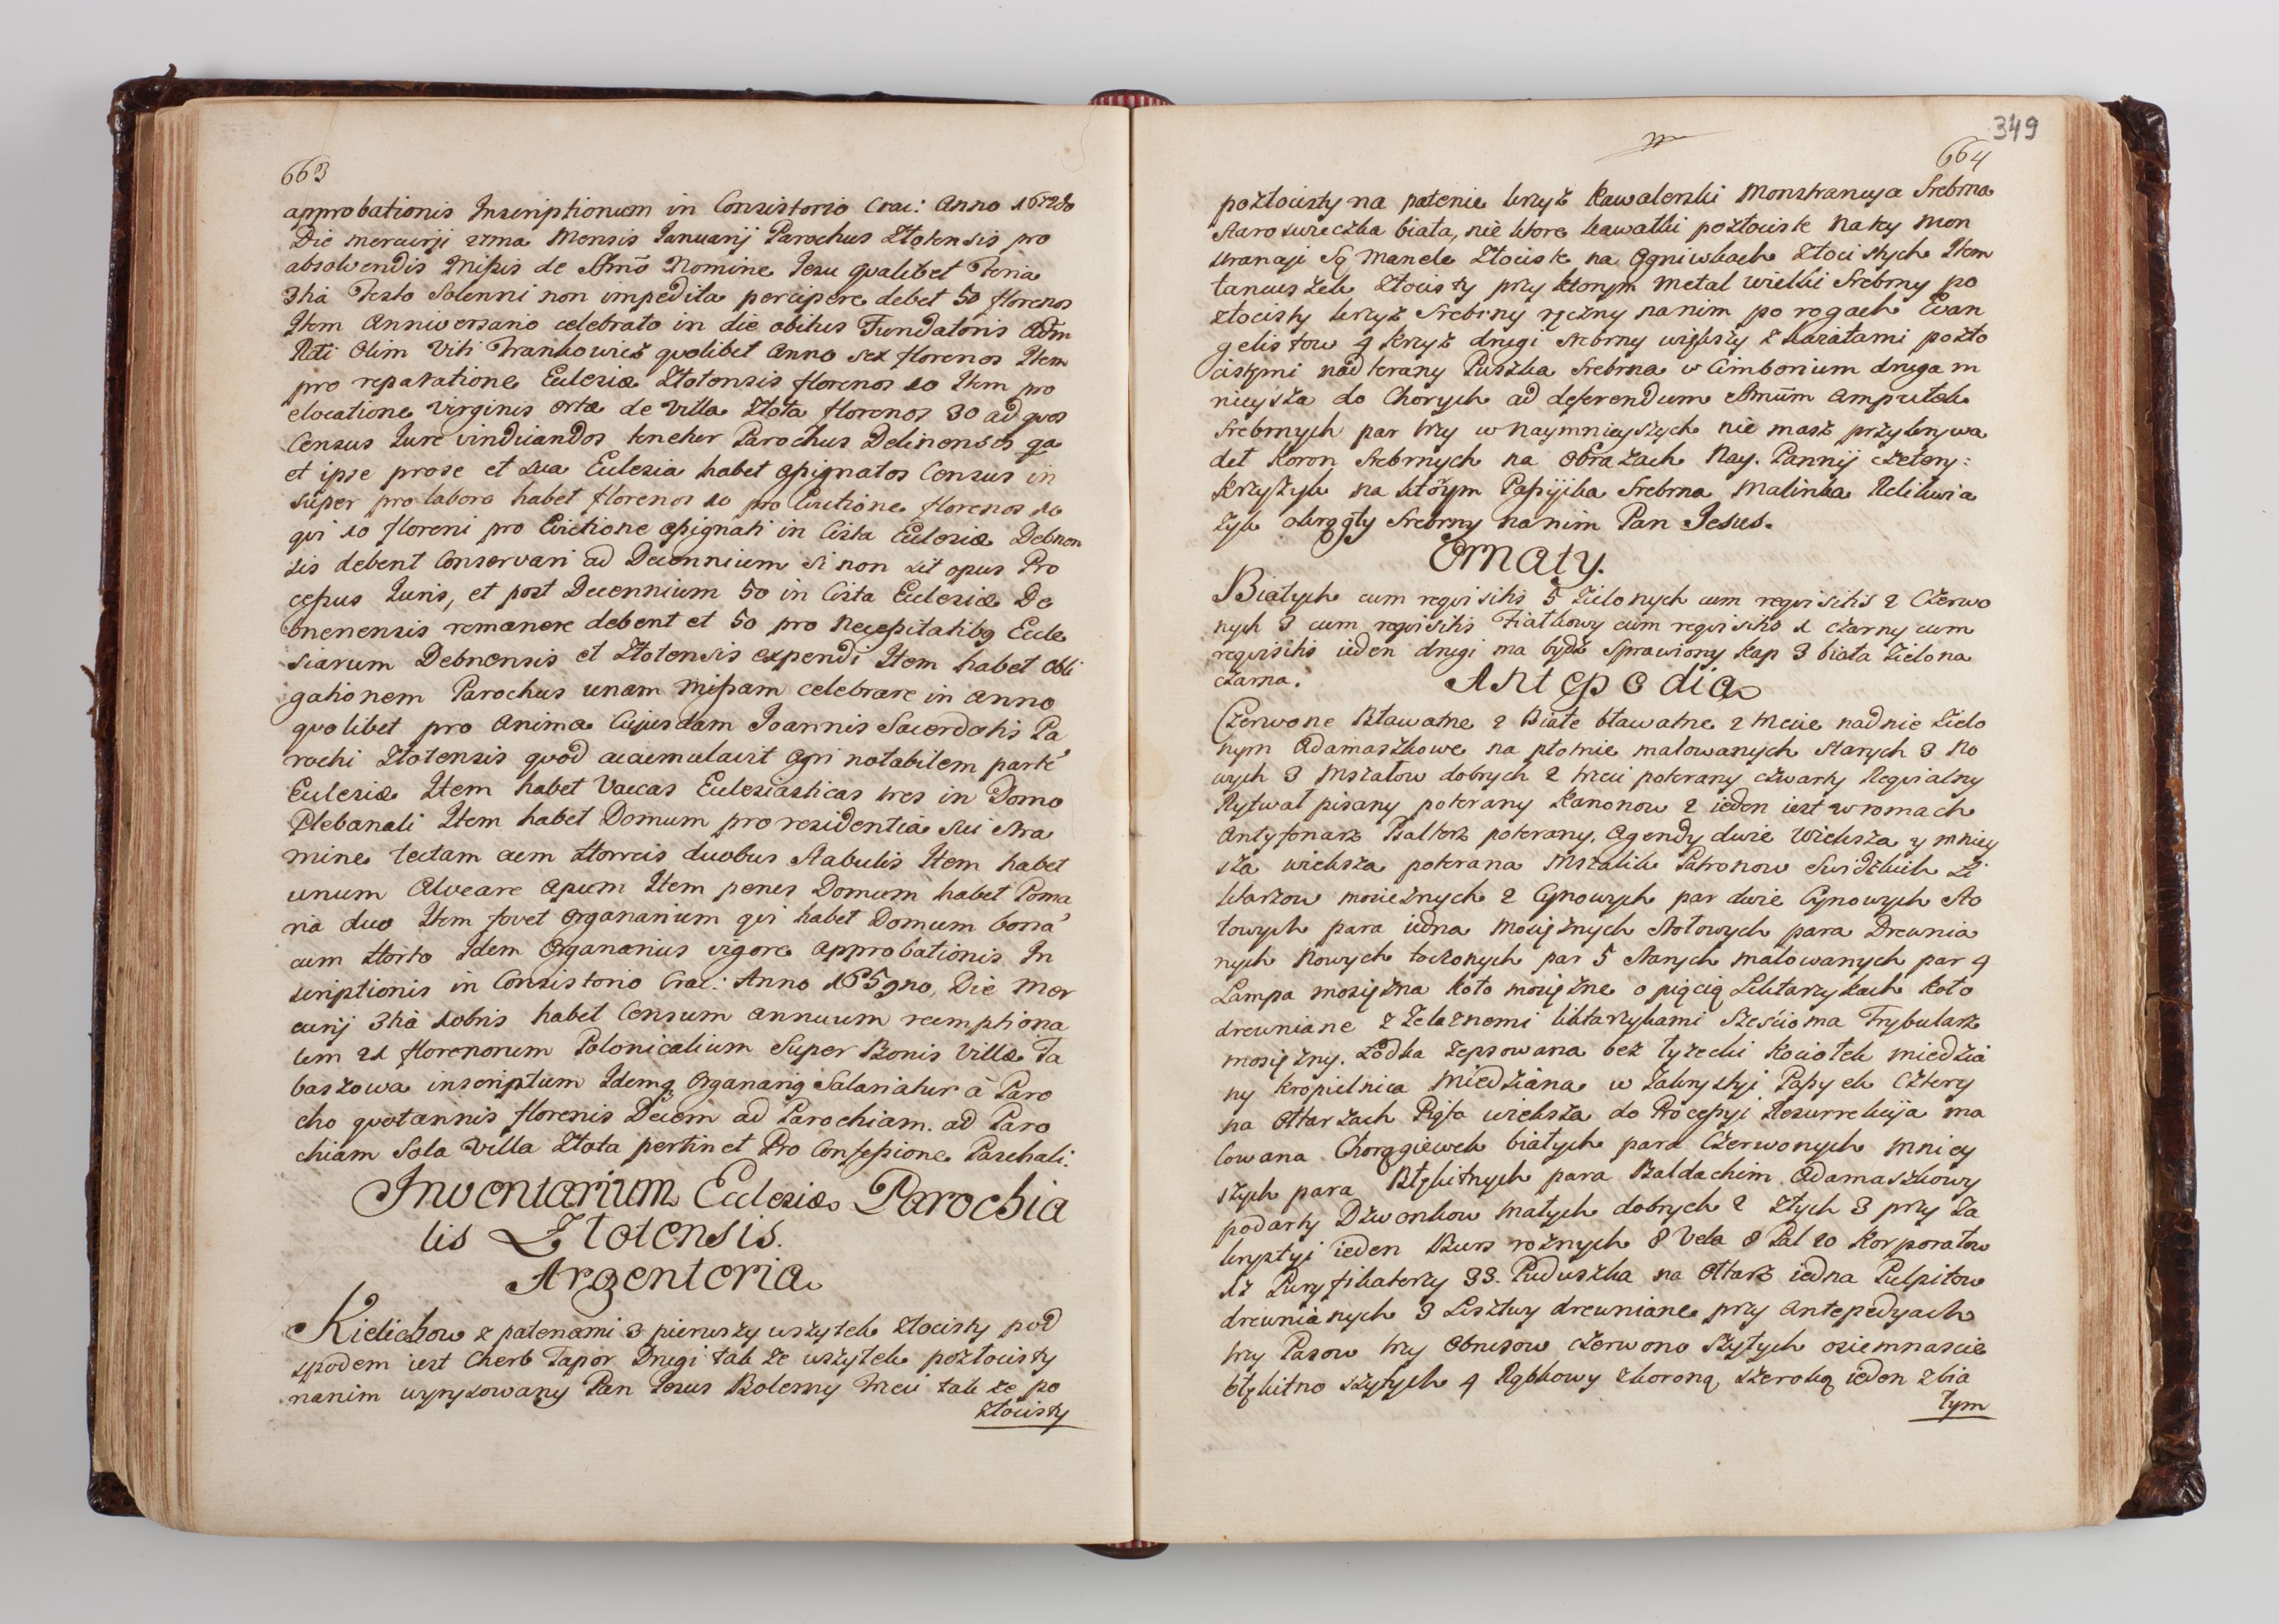 663
approbationis Inscriptionum in Consistorio Crac: Anno 1672do
Die mercurij 27ma Mensis Januarij Parochus Złotensis pro
absolvendis Missis de SSmo Nomine Jesu qualibet Feria
3tia Festo Solenni non impedita percipere debet 50 florenos
Item Anniversario celebrato in die obitus Fundatoris Adm
Rdi Olim Viti Frankowicz quolibet Anno sex florenos Item
pro reparatione Eclesiæ Złotensis florenos 10 Item pro
elocatione Virginis ortæ de villa Złota florenos 30 ad quos
Census Jure vindicandos tenetur Parochus Debnensis qa
et ipse pro se et sua Eclesia habet opignatos Census in
super pro labore habet florenos 10 pro Evictione florenos 10
qvi 10 floreni pro Evictione opignati in Cista Eclesiæ Debnen
sis debent Conservari ad Decennium si non sit opus Pro
cessus Juris, et post Decennium 50 in Cista Eclesiæ De
bnenensis remanere debent et 50 pro Necessitatibq Ecle
siarum Debnensis et Złotensis expendi Item habet Obli
gationem Parochus unam Missam celebrare in anno
quolibet pro Anima Cujusdam Joannis Sacerdotis Pa
rochi Złotensis quod accumulavit Agri notabilem parte
Eclesiæ Item habet Vaccas Eclesiasticas tres in Domo
Plebanali Item habet Domum pro residentia sui stra
mine tectam cum Horreis duobus stabulis Item habet
unum Alveare Apum Item penes Domum habet Poma
ria duo Item fovet Organarium qvi habet Domum bona
cum Horto Idem Organarius vigore approbationis In
scriptionis in Consistorio Crac: Anno 1659no, Die Mer
curij 3tia 10bris habet Censum annuum reemptiona
lem 21 florenorum Polonicalium Super Bonis Villæ Ta
baszowa inscriptum Idemq Organariq Salariatur à Paro
cho quotannis florenis Decem ad Parochiam. ad Paro
chiam Sola Villa Złota pertinet Pro Confessione Paschali.
Inventarium Eclesiæ Parochia
lis Złotensis.
Argenteria
Kielichow z patenami 3 pierwszy wszytek złocisty pod
spodem iest Cherb Tapor Drugi tak że wszytek pozłocisty
na nim wyrysowany Pan Jezus Bolesny trzeci tak że po
złocisty
349
664
pozłocisty na patenie krzyż Kawalerski Monstrancya Srebrna
staroswieczka biała, nie ktore kawałki pozłociste na tey mon
strancji Są Manele złociste na Ogniwkach złoci stych Item
łancuszek złocisty przy ktorym metal wielki Srebrny po
złocisty krzyż Srebrny ręczny na nim po rogach Ewan
gelistow 4 Krzyż drugi srebrny większy z Karałami pozło
cistymi nad terany Puszka Srebrna w Cimborium druga m
nieysza do Chorych ad deferendum SSmum Ampułek
Srebrnych par trzy w naymnieyszych nie masz przykrywa
deł Koron Srebrnych na Obrazach Nay. Pannij cztery:
Krzyżyk na ktorym Passyjka Srebrna Malinka Relikwia
żyk okrągły Srebrny na nim Pan Jesus.
Ornaty.
Białych cum reqvisitis 5 zielonych cum reqvisitis 2 Czerwo
nych 3 cum reqvisitis Fiałkowy cum reqvisitis 1 czarny cum
reqvisitis ieden drugi ma bydź sprawiony Kap 3 biała zielona
czarna.
Antepedia
Czerwone Bławatne 2 Białe bławatne 2 trzecie na dnie zielo
nym Adamaszkowe na płotnie malowanych starych 3 No
wych 3 Mszałow dobrych 2 trzeci poterany czwarty Reqvialny
Rytwał pisany poterany Kanonow 2 ieden iest w romach
Antyfonarz Psałterz poterany. Agendy dwie wieksza y mniey
sza wieksza poterana Mszalik Patronow Swidzkich Li
Chtarzow mosieznych 2 Cynowych par dwie Cynowych sto
łowych para iedna Mosiężnych stołowych para Drewnia
nych Nowych toczonych par 5 starych malowanych par 4
Lampa mosiężna Koło mosiężne o pięcią Lichtarzykach Koło
drewniane z żelaznemi lichtarzykami szescioma Trybularz
mosiężny. Łodka zepsowana bez łyzecki Kociołek miedzia
ny Kropielnica Miedziana w Zakrystyi Passyek Cztery
na Ołtarzach Pigta wieksza do Processyi Resurrekcyja ma
lowana Chorągiewek białych para Czerwonych mniey
szych para Błękitnych para Baldachim Adamaszkowy
podarty Dzwonkow małych dobrych 2 złych 3 przy Za
krystyi ieden Burs rożnych 8 Vela 8 Pal 20 Korporałow
12 Puryfikaterzy 33. Puduszka na Ołtarz iedna Pulpitow
drewnianych 3 Lisztwy drewniane przy Antepedyach
trzy Pasow trzy Obrusow czerwono szytych osiemnascie
błękitno szytych 4 Rąbkowy z koroną szeroką ieden z bia
łym